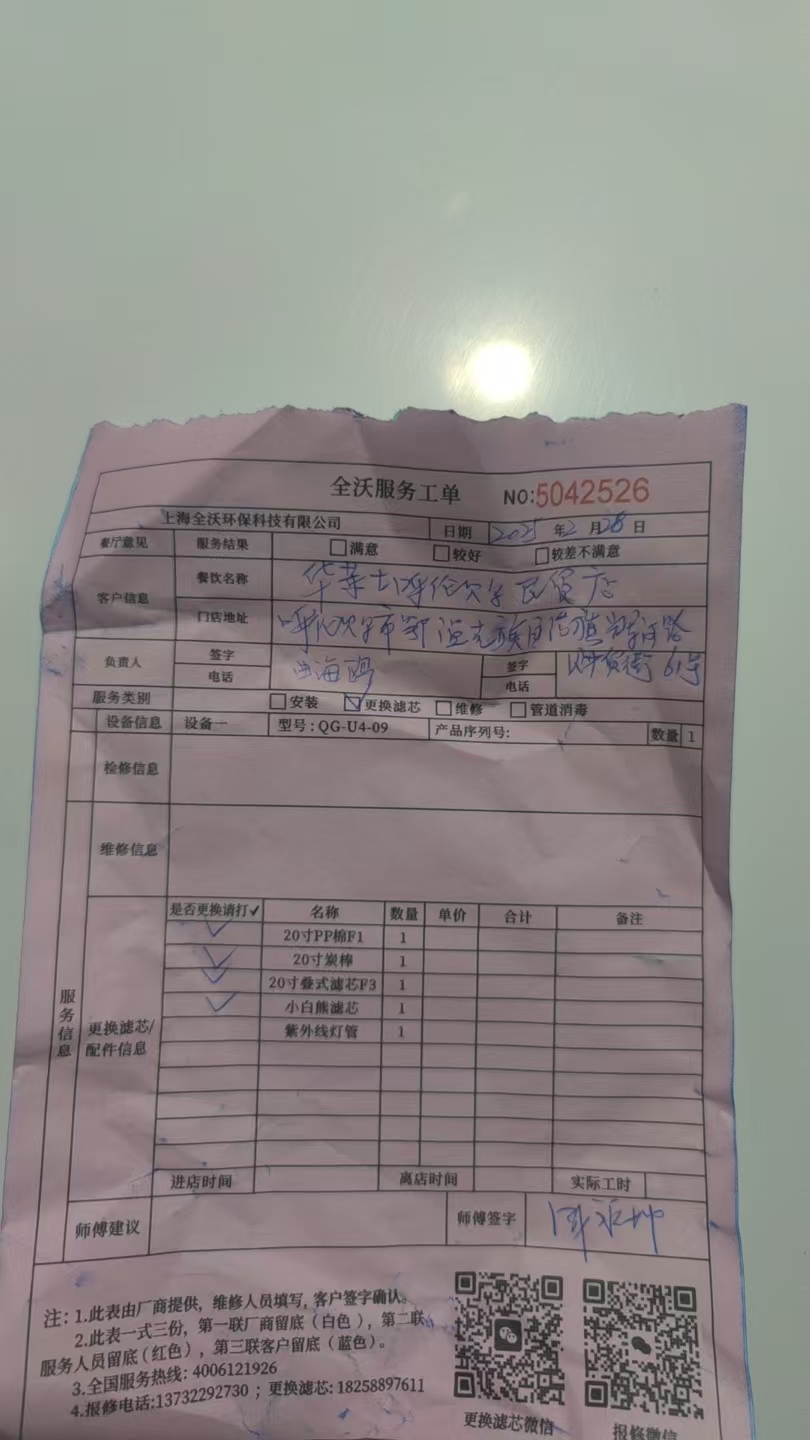 全沃服务工单 NO:5042526
上海全沃环保科技有限公司 日期 2025年2月28日
餐厅意见 服务结果 满意 较好 较差不满意
客户信息 餐饮名称 华莱士呼伦贝尔民贸店
门店地址 呼伦贝尔市鄂温克族自治旗
负责人 签字 海鸥 签字 街61号
电话 电话
服务类别 安装 更换滤芯 维修 管道消毒
设备信息 设备一 型号:QG-U4-09 产品序列号: 数量 1
检修信息
维修信息
服务信息
更换滤芯/配件信息
是否更换请打✓ 名称 数量 单价 合计 备注
✓ 20寸PP棉F1 1
✓ 20寸炭棒 1
✓ 20寸叠式滤芯F3 1
✓ 小白熊滤芯 1
紫外线灯管 1
进店时间 离店时间 实际工时
师傅建议 师傅签字
注:1.此表由厂商提供,维修人员填写,客户签字确认。
2.此表一式三份,第一联厂商留底(白色),第二联
服务人员留底(红色),第三联客户留底(蓝色)。
3.全国服务热线:4006121926
4.报修电话:13732292730;更换滤芯:18258897611
更换滤芯微信 报修微信